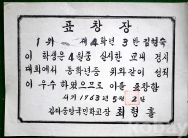 표창장
1위 제4학년 3반 김형숙
이 학생은 4월중 실시한 교내 경시
대회에서 동학년중 위와같이 성적
이 우수하였으므로 이를 표창함
서기 1963년 5월 2일
국민학교장 최형홀